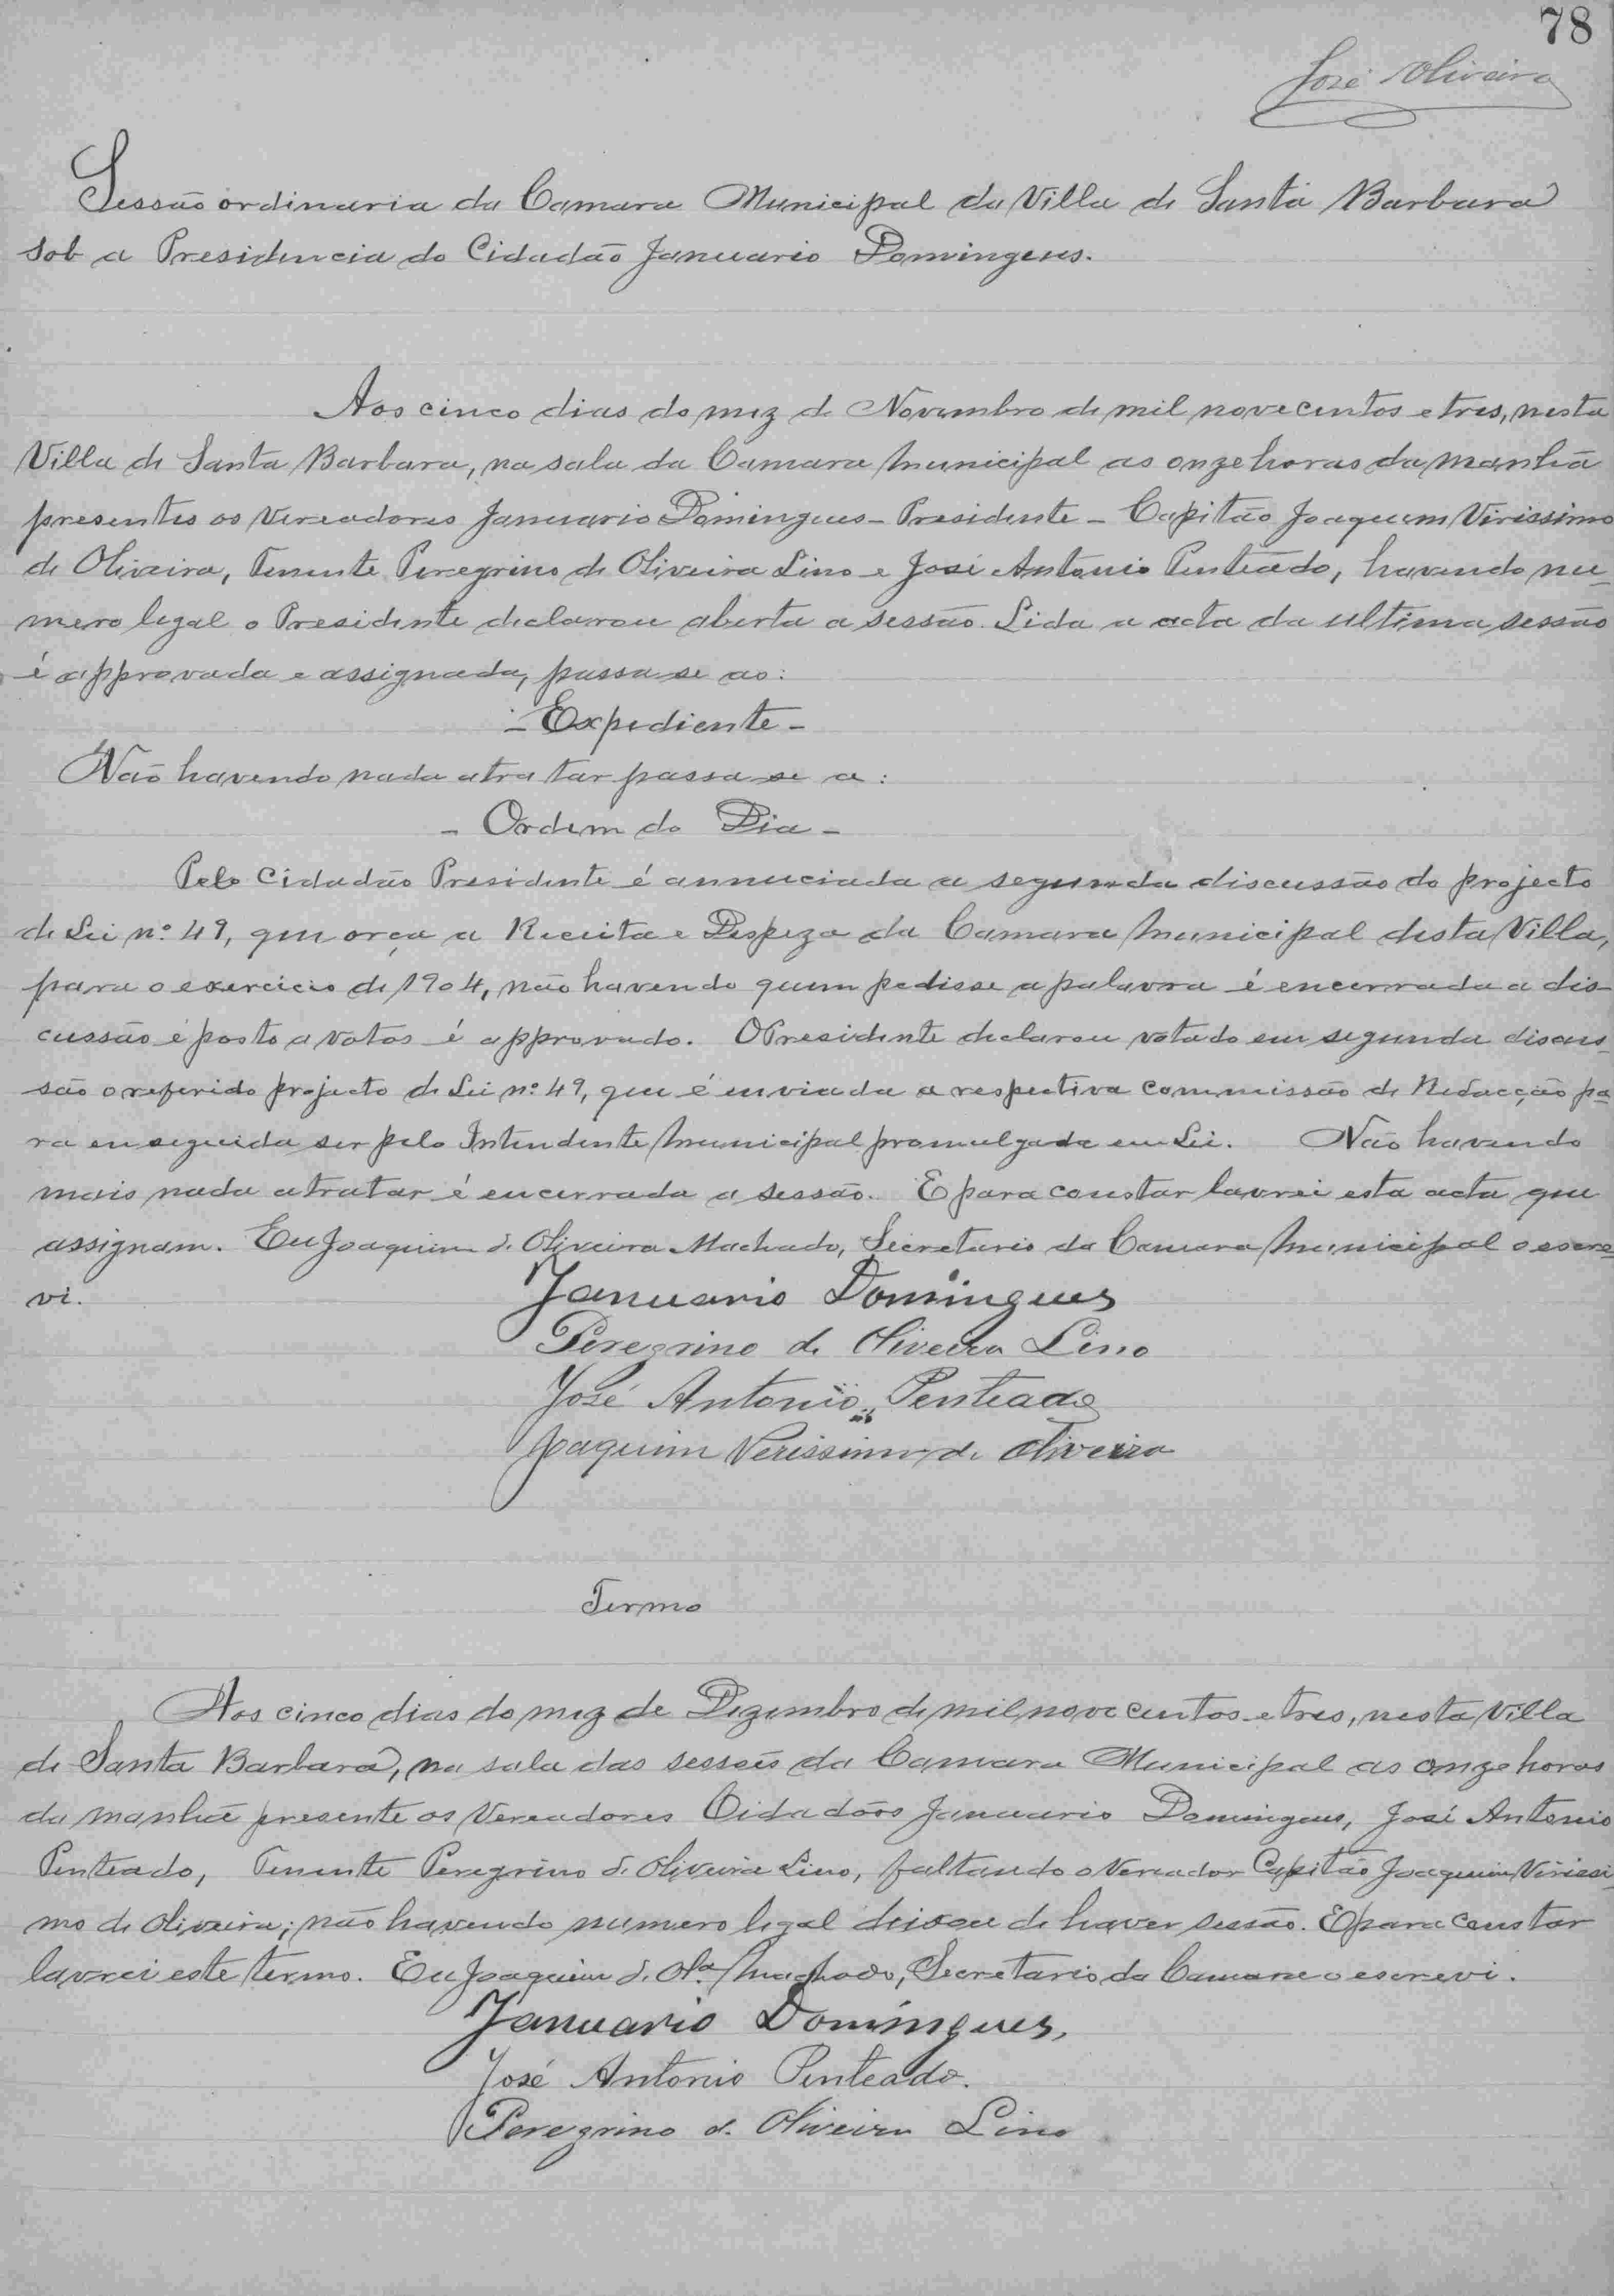 78
José Oliveira
Sessão ordinaria da Camara Municipal da Villa de Santa Barbara
sob a Presidencia do Cidadão Januario Domingues.
Aos cinco dias do mez de Novembro de mil novecentos e tres, nesta
Villa de Santa Barbara, na sala da Camara Municipal as onze horas da manhã
presentes os Vereadores Januario Domingues - Presidente - Capitão Joaquim Virissimo
de Oliveira, Tenente Peregrino de Oliveira Lino e José Antonio Penteado, havendo nu-
mero legal o Presidente declarou aberta a sessão. Lida a acta da ultima sessão
é approvada e assignada, passa se ao:
- Expediente -
Não havendo nada a tratar passa se a:
- Ordem do Dia -
Pelo Cidadão Presidente é annuciada a segunda discussão do projecto
de Lei nº 49, que orça a Receita e Despeza da Camara Municipal desta Villa,
para o exercicio de 1904, não havendo quem pedisse a palavra é encerrada a dis-
cussão e posto a votos é approvado. O Presidente declarou votado em segunda discus-
são o referido projecto de Lei nº 49, que é enviada a respectiva commissão de Redacção pa-
ra em seguida ser pelo Intendente Municipal promulgada em Lei. Não havendo
mais nada a tratar é encerrada a sessão. E para constar lavrei esta acta que
assignam. Eu Joaquim de Oliveira Machado, Secretario da Camara Municipal o escre-
vi.
Januario Domingues
Peregrino de Oliveira Lino
José Antonio Penteado
Joaquim Verissimo de Oliveira
Termo
Aos cinco dias do mez de Dezembro de mil novecentos e tres, nesta Villa
de Santa Barbara, na sala das sessoes da Camara Municipal as onze horas
da manhã presente os Vereadores Cidadãos Januario Domingues, José Antonio
Penteado, Tenente Peregrino de Oliveira Lino, faltando o Vereador Capitão Joaquim Virissi-
mo de Oliveira; não havendo numero legal deixou de haver sessão. E para constar
lavrei este termo. Eu Joaquim de Olª Machado, Secretario da Camara o escrevi.
Januario Domingues,
José Antonio Penteado.
Peregrino de Oliveira Lino